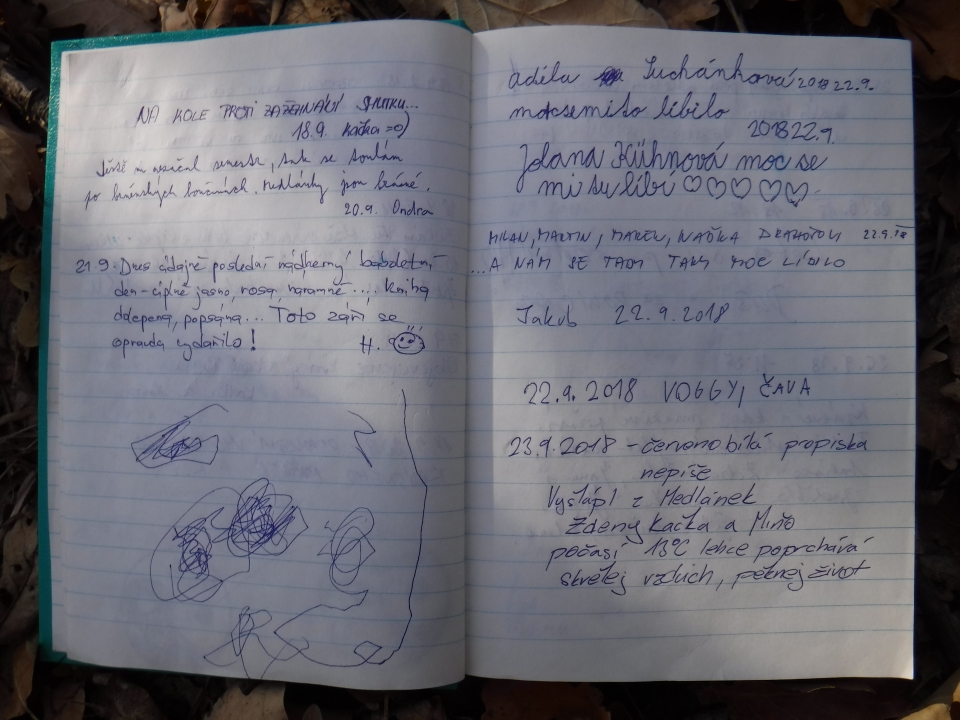 NA KOLE PROTI ZAŽEHNÁNÍ SMUTKU...
18.9. Kačka =o)
Ještě nezačal semestr, tak se toulám
po brněnských kopcích. Medlánky jsou krásné.
20.9. Ondra
21.9. Dnes údajně poslední nádherný babíletní
den - úplně jasno, rosa, naramně .... kniha
dolepená, popsaná... Toto září se
opravdu vydařilo! H.
adéla Suchánková 2018 22.9.
motsemito líbilo
2018 22.9.
Jolana Kühnová moc se
mi tu líbí ♡♡♡♡♡
MILAN, MARTIN, MAREK, 22.9.18
...A NÁM SE TADY TAKY MOC LÍBILO
Jakub 22.9.2018
22.9.2018 VOGGY, ČAVA
23.9.2018 - červenobílá propiska
nepíše
Vyšlápl z Medlánek
Zdeny Kačka a Miňo
počasí 13°C lehce poprchává
skvělej vzduch, pěknej život